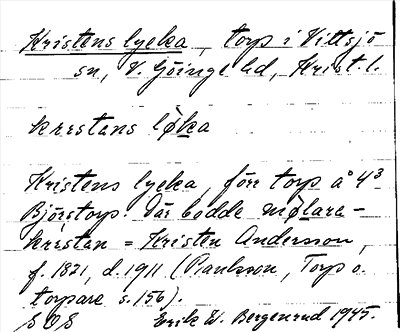 Kristens lycka, torp i Vittsjö
sn, V. Göinge hd, Krist. l.
krestans løka
Kristens lycka, förr torp å 4³
Björstorp. Där bodde mølara-
krestan = Kristen Andersson,
f. 1821, d. 1911 (Paulsson, Torp o.
torpare s. 156).
Erik W. Bergenrud 1945.